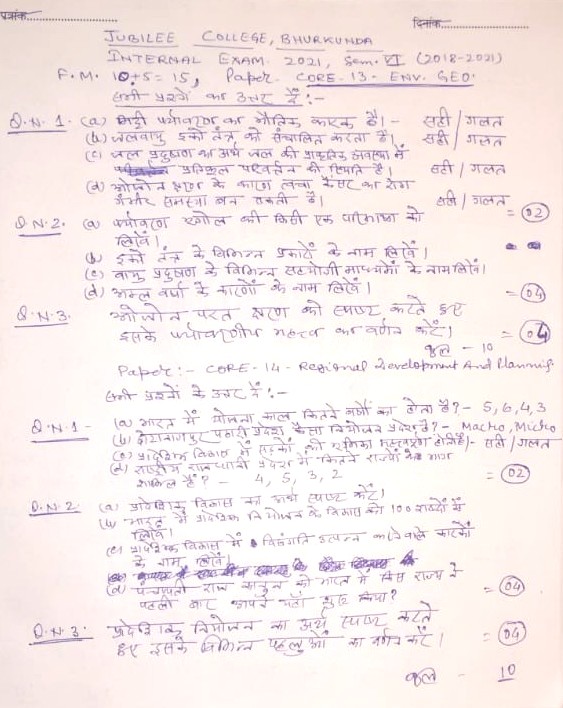 पत्रांक.......................... दिनांक..........................
JUBILEE COLLEGE, BHURKUNDA
INTERNAL EXAM. 2021, Sem. VI (2018-2021)
F.M. 10+5 = 15, Paper- CORE-13- ENV. GEO.
सभी प्रश्नों का उत्तर दें :-
Q.N. 1. (a) मिट्टी पर्यावरण का भौतिक कारक है। - सही / गलत
(b) जलवायु इको तंत्र को संचालित करता है। सही / गलत
(c) जल प्रदुषण का अर्थ जल की प्राकृतिक अवस्था में
प्रतिकूल परिवर्तन की स्थिति है। सही / गलत
(d) ओजोन क्षरण के कारण त्वचा कैंसर का रोग
गंभीर समस्या बन सकती है। सही / गलत = 02
Q.N.2. (a) पर्यावरण भूगोल की किसी एक परिभाषा को
लिखें।
(b) इको तंत्र के विभिन्न प्रकारों के नाम लिखें।
(c) वायु प्रदुषण के विभिन्न सहयोगी माध्यमों के नाम लिखें।
(d) अम्ल वर्षा के कारणों के नाम लिखें। = 04
Q.N.3. ओजोन परत क्षरण को स्पष्ट करते हुए
इसके पर्यावरणीय महत्व का वर्णन करें। = 04
कुल - 10
Paper:- CORE-14 - Regional Development And Planning
सभी प्रश्नों के उत्तर दें :-
Q.N.1- (a) भारत में योजना काल कितने वर्षों का होता है? - 5, 6, 4, 3
(b) छोटानागपुर पठारी प्रदेश कैसा नियोजन प्रदेश है? - Macho, Micho
(c) प्रादेशिक विकास में सड़कों की भूमिका महत्वपूर्ण होती है।- सही / गलत
(d) राष्ट्रीय राजधानी प्रदेश में कितने राज्यों के भाग
शामिल हैं? - 4, 5, 3, 2 = 02
Q.N.2 (a) प्रादेशिक विकास का अर्थ स्पष्ट करें।
(b) भारत में प्रादेशिक नियोजन के विकास को 100 शब्दों में
लिखें।
(c) प्रादेशिक विकास में विसंगति उत्पन्न करनेवाले कारकों
के नाम लिखें।
(d) पंचायती राज कानून को भारत में किस राज्य ने
पहली बार अपने यहाँ शुरू किया? = 04
Q.N.3. प्रादेशिक नियोजन का अर्थ स्पष्ट करते
हुए इसके विभिन्न पहलुओं का वर्णन करें। = 04
कुल - 10